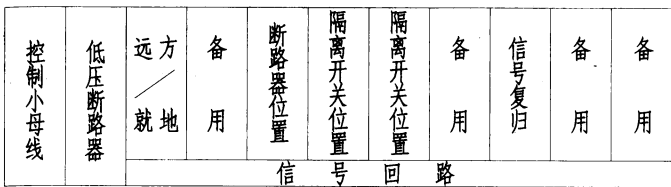 控制小母线
低压断路器
远方/就地
备用
断路器位置
隔离开关位置
隔离开关位置
备用
信号复归
备用
备用
信号回路